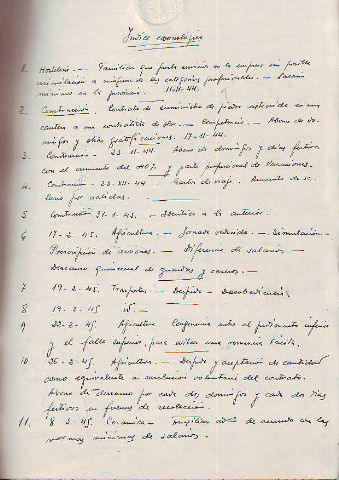 Indice cronológico
1. Hosteleria. - Familiares que presta servicio en la empresa sin posible
asimilación a ninguna de las categorías profesionales. - Salario
mínimo en la provincia. 11-11-44.
2. Construcción. Contrato de suministro de piedra extraida en una
cantera a un contratista de obra. - Competencia. - Abono de do-
mingos y otras gratificaciones. 17-11-44.
3. 23-11-44. Abono de domingos y dias festivos
con el aumento del 40% y parte proporcional de vacaciones.
4. 23-XII-44. Gastos de viaje. Aumento de sa-
lario por salidas.
5 Construcción 31-1-45. - Identica a la anterior.
6 17-2-45. Agricultura. - Jornada reducida. - Simulación. -
Prescripción de acciones. - Diferencia de salarios. -
Descanso quincenal de guardas y caseros. -
7 19-2-45. Trasportes. - Despido - Desobediencia
8 19-2-45 id. -
9 22-2-45. Agricultura. Congruencia entre el pedimento inferior
y el fallo superior, para evitar una renuncia tácita.
10. 26-2-45. Agricultura. - Despido y aceptación de cantidad
como equivalente a conclusión voluntaria del contrato.
Abono de descanso por cada dos domingos y cada dos dias
festivos en faenas de recolección.
11. 8-2-45. Ceramica. - de acuerdo con las
normas mínimas de salarios.